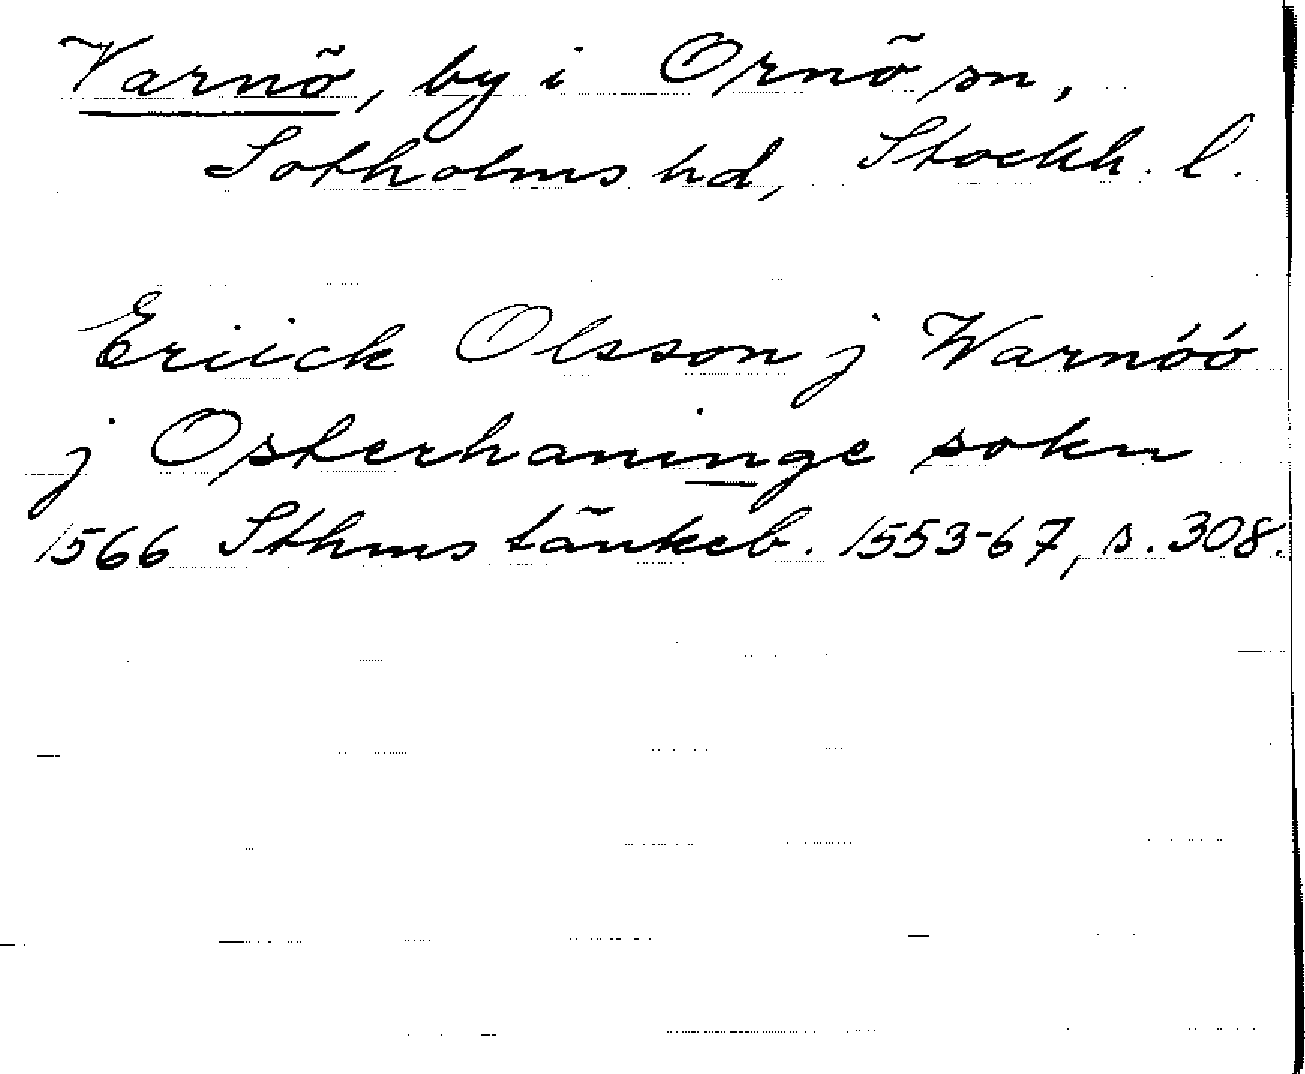 Varnö, by i Ornö sn,
Sotholms hd, Stockh. l.
Eriick Olsson j Warnóó
j Osterhaninge sokn
1566 Sthms tänkeb. 1553-67, s. 308.